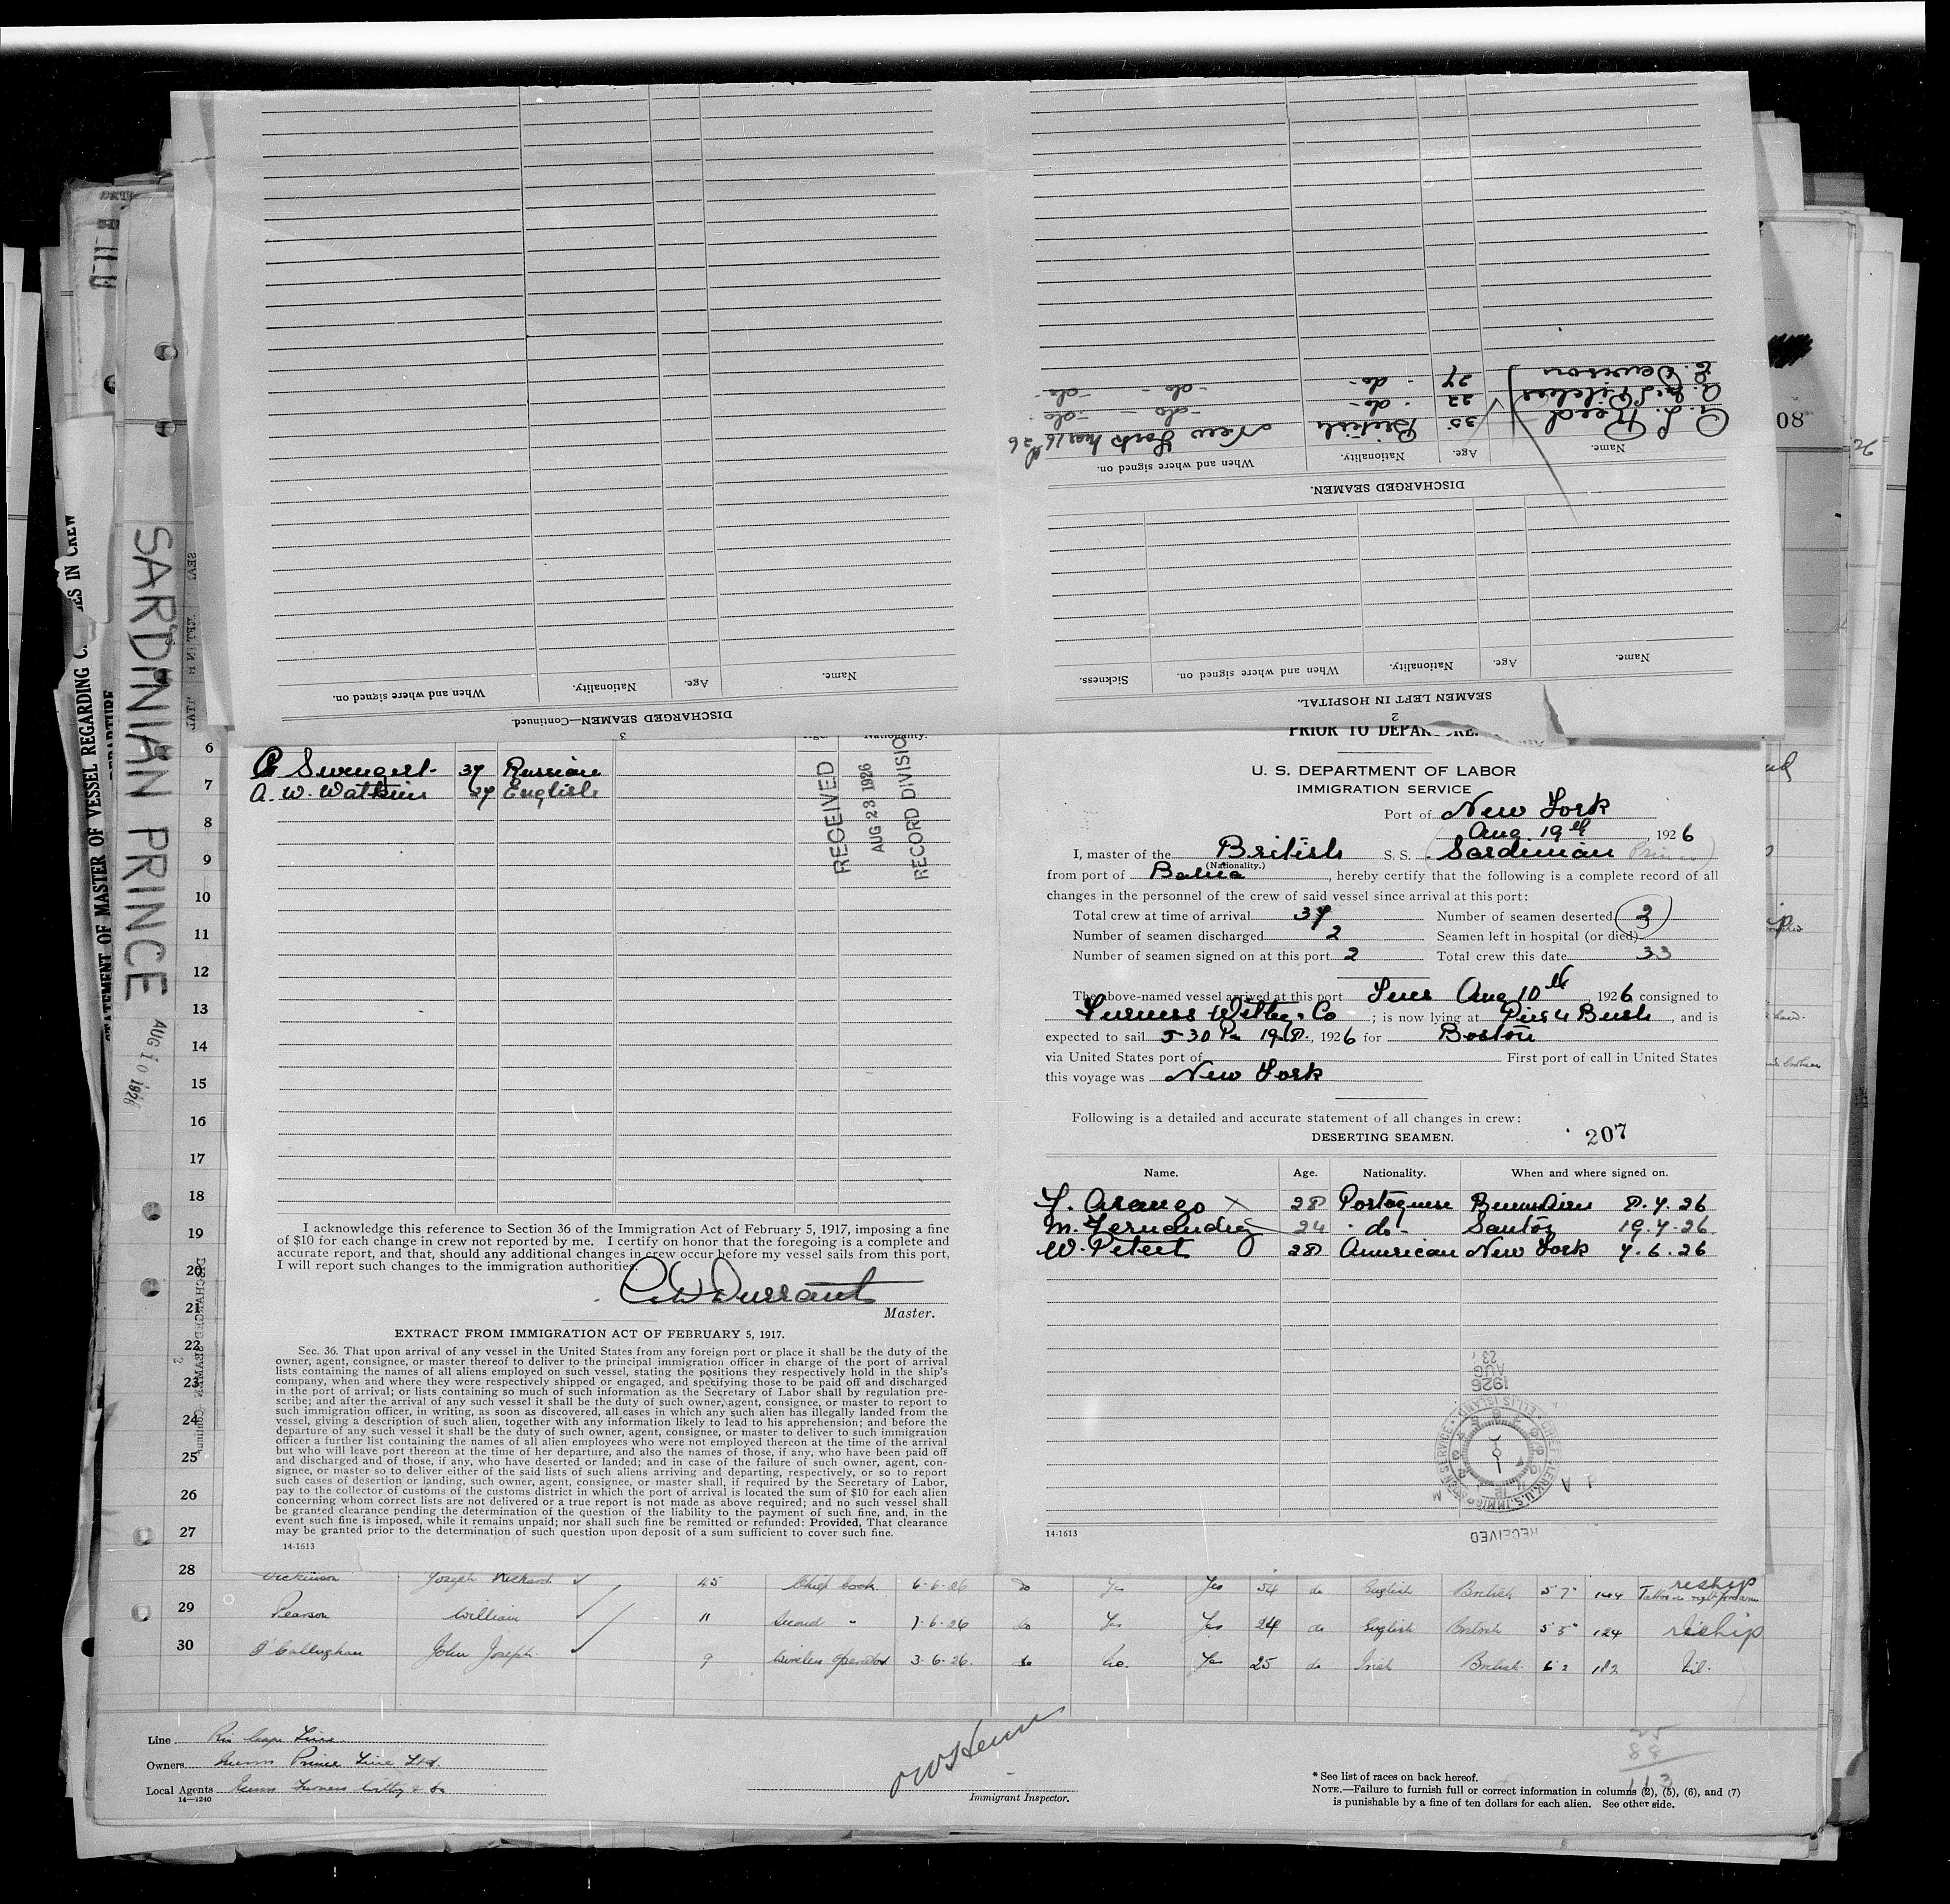 DISCHARGED SEAMEN.
Name. Age. Nationality. When and where signed on.
A. L. Reed 35 British New York
22 -do- -do- -do-
E. Davison 27 -do- -do- -do-
2
SEAMEN LEFT IN HOSPITAL.
Name. Age. Nationality. When and where signed on. Sickness.
3
DISCHARGED SEAMEN—Continued.
Name. Age. Nationality. When and where signed on.
08
STATEMENT OF MASTER OF VESSEL REGARDING
IN CREW
DEPARTURE
SARDINIAN PRINCE
AUG 10 1926
6
7
8
9
10
11
12
13
14
15
16
17
18
19
20
21
22
23
24
25
26
27
Nationality.
37 Russian
A. W. Watkins 27 English
RECEIVED
AUG 23 1926
RECORD DIVISIO
I acknowledge this reference to Section 36 of the Immigration Act of February 5, 1917, imposing a fine
of $10 for each change in crew not reported by me. I certify on honor that the foregoing is a complete and
accurate report, and that, should any additional changes in crew occur before my vessel sails from this port,
I will report such changes to the immigration authorities.
C W Durrant
Master.
EXTRACT FROM IMMIGRATION ACT OF FEBRUARY 5, 1917.
Sec. 36. That upon arrival of any vessel in the United States from any foreign port or place it shall be the duty of the
owner, agent, consignee, or master thereof to deliver to the principal immigration officer in charge of the port of arrival
lists containing the names of all aliens employed on such vessel, stating the positions they respectively hold in the ship's
company, when and where they were respectively shipped or engaged, and specifying those to be paid off and discharged
in the port of arrival; or lists containing so much of such information as the Secretary of Labor shall by regulation pre-
scribe; and after the arrival of any such vessel it shall be the duty of such owner, agent, consignee, or master to report to
such immigration officer, in writing, as soon as discovered, all cases in which any such alien has illegally landed from the
vessel, giving a description of such alien, together with any information likely to lead to his apprehension; and before the
departure of any such vessel it shall be the duty of such owner, agent, consignee, or master to deliver to such immigration
officer a further list containing the names of all alien employees who were not employed thereon at the time of the arrival
but who will leave port thereon at the time of her departure, and also the names of those, if any, who have been paid off
and discharged and of those, if any, who have deserted or landed; and in case of the failure of such owner, agent, con-
signee, or master so to deliver either of the said lists of such aliens arriving and departing, respectively, or so to report
such cases of desertion or landing, such owner, agent, consignee, or master shall, if required by the Secretary of Labor,
pay to the collector of customs of the customs district in which the port of arrival is located the sum of $10 for each alien
concerning whom correct lists are not delivered or a true report is not made as above required; and no such vessel shall
be granted clearance pending the determination of the question of the liability to the payment of such fine, and, in the
event such fine is imposed, while it remains unpaid; nor shall such fine be remitted or refunded: Provided, That clearance
may be granted prior to the determination of such question upon deposit of a sum sufficient to cover such fine.
14-1613
PRIOR TO DEPARTURE.
U. S. DEPARTMENT OF LABOR
IMMIGRATION SERVICE
Port of New York
Aug. 19th, 1926
I, master of the British S. S. Sardinian Prince
(Nationality.)
from port of Bahia, hereby certify that the following is a complete record of all
changes in the personnel of the crew of said vessel since arrival at this port:
Total crew at time of arrival 37 Number of seamen deserted 3
Number of seamen discharged 2 Seamen left in hospital (or died)
Number of seamen signed on at this port 2 Total crew this date 33
The above-named vessel arrived at this port Tues Aug 10th, 1926 consigned to
Furness Withy & Co; is now lying at Pier 4 Bush, and is
expected to sail 5 30 Pm 19th, 1926 for Boston
via United States port of First port of call in United States
this voyage was New York
Following is a detailed and accurate statement of all changes in crew:
DESERTING SEAMEN. 207
Name. Age. Nationality. When and where signed on.
Arango X 28 Portoguese 8.7.26
M. Fernandez 24 -do- Santos 19.7.26
W. Peteet 28 American New York 7.6.26
AUG 23
1926
RECEIVED
14-1613
28 Dickinson Joseph Richard 45 Chief Cook 6-6-26 do Yes Yes 54 do English British 5 7 144 reship
29 Pearson William 11 Second " 7-6-26 do Yes Yes 24 do English British 5 5 124 reship
30 O'Callaghan John Joseph 9 Wireless Operator 3-6-26 do No. Yes 25 do Irish British 6 2 182 Nil.
Line Rio Cape Line
Owners Prince Line Ltd.
Local Agents Furness Withy & Co
14—1240
Immigrant Inspector.
* See list of races on back hereof.
NOTE.—Failure to furnish full or correct information in columns (2), (5), (6), and (7)
is punishable by a fine of ten dollars for each alien. See other side.
25
88
113